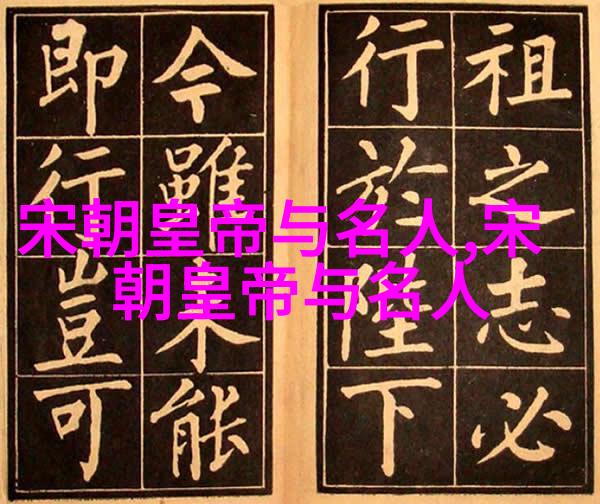 祖之志必
行於陛下
今雖未能
即行豈可
宋朝皇帝与名人,宋
朝皇帝与名人